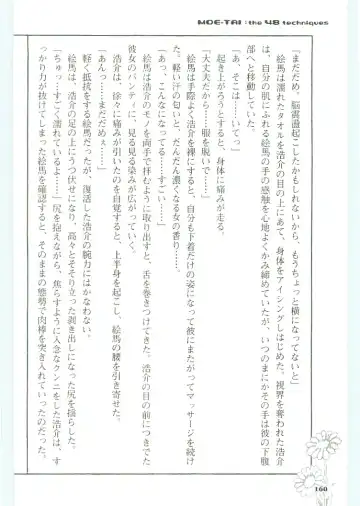 MOE-TAI : the 48 techniques
「まだだめ、脳震盪起こしたかもしれないから、もうちょっと横になってないと」
絵馬は濡れたタオルを浩介の目の上にあて、身体をアイシングしはじめた。視界を奪われた浩介
は、自分の肌にふれる絵馬の手の感触を心地よくかみ締めていたが、いつのまにかその手は彼の下腹
部へと移動していた。
「あ、そこは……いてっ」
起き上がろうとすると、身体に痛みが走る。
「大丈夫だから……服を脱いで……」
絵馬は手際よく浩介を裸にすると、自分も下着だけの姿になって彼にまたがってマッサージを続け
た。軽い汗の匂いと、だんだん濃くなる女の香り……。
「あっ、こんなになってる……すごい……」
絵馬は浩介のモノを両手で拝むように取り出すと、舌を巻きつけてきた。浩介の目の前につきでた
彼女のパンティに、見る見る染みが広がっていく。
「あんっ……まだだめぇ……」
浩介は、徐々に痛みが引いたのを自覚すると、上半身を起こし、絵馬の腰を引き寄せた。
軽く抵抗をする絵馬だったが、復活した浩介の腕力にはかなわない。
絵馬は、浩介の足の上にうつぶせになり、高々とそそり立った剥き出しになった尻を揺らした。
「ちゅっ……すごく濡れているよ……」尻を抱えながら、焦らすように入念なクンニをした浩介は、す
っかり力が抜けてしまった絵馬を確認すると、そのままの態勢で肉棒を突き入れていったのだった。
160